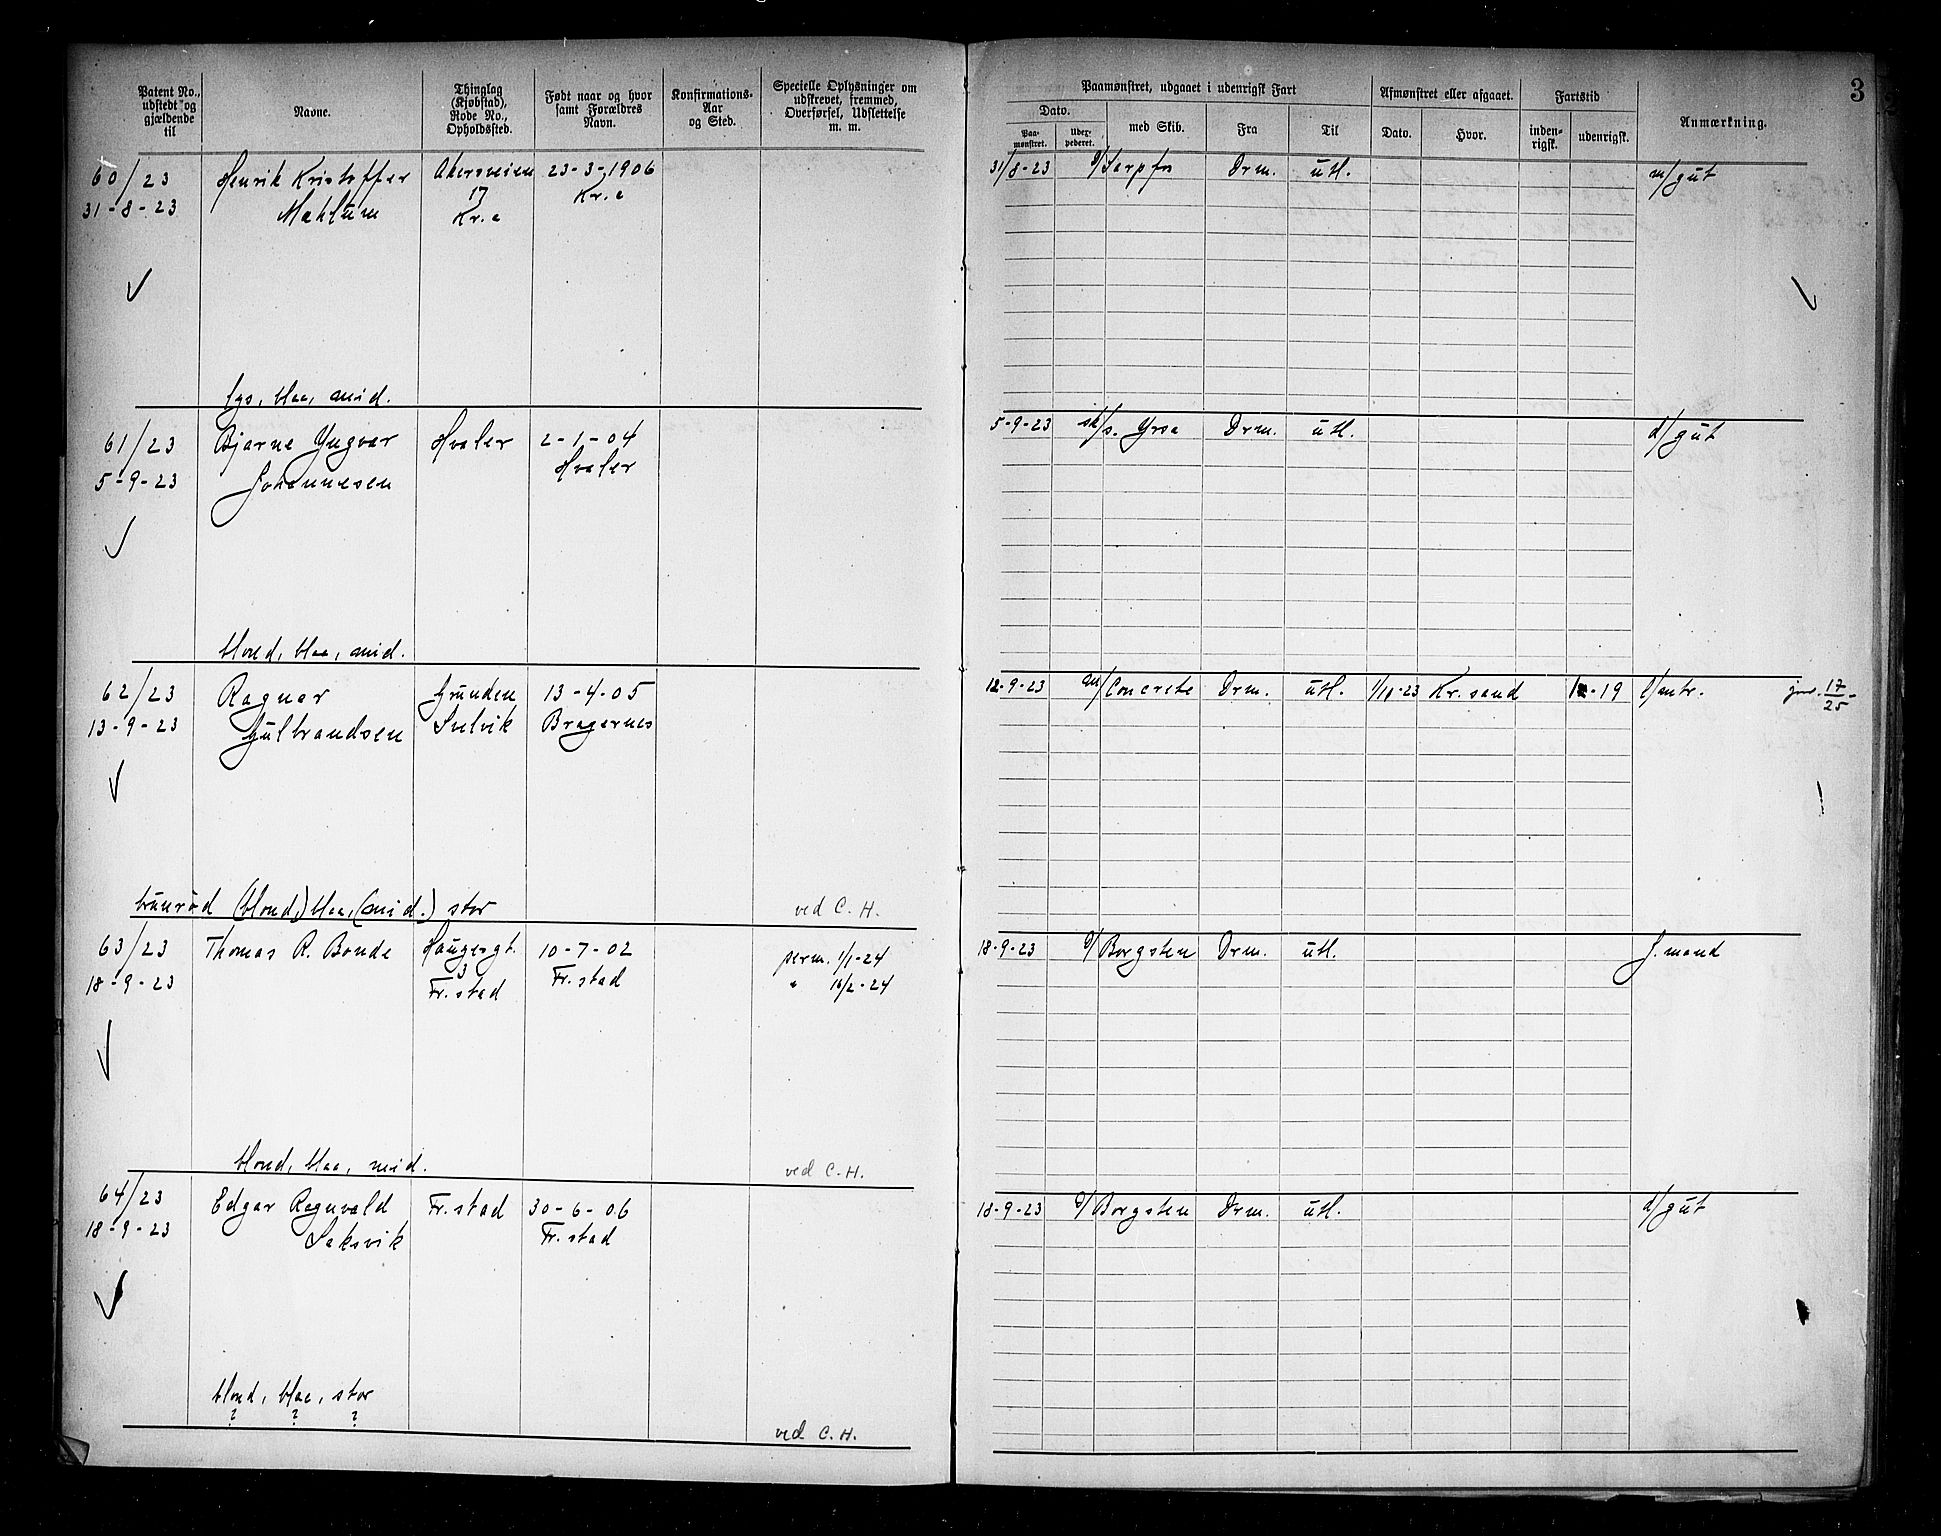 Patent No., udstedt og gjældende til
Navne.
Thinglag (Kjøbstad), Rode No., Opholdssted.
Født naar og hvor samt Forældres Navn.
Konfirmations- Aar og Sted.
Specielle Oplysninger om udskrevet, fremmed, Overførsel, Udslettelse m. m.
60/23
Henrik Kristoffer
Akersveien
23-3-1906
31-8-23
Mæhlum
17
Kr.a
Kr.a
lys, blaa, mid.
61/23
Bjarne Yngvar
Hvaler
2-1-04
5-9-23
Johannesen
Hvaler
blond, blaa, mid.
62/23
Ragnar
Grunden
13-4-05
13-9-23
Gulbrandsen
Svelvik
Bragernes
brunrød (blond,) blaa, (mid.) stor
ved C. H.
63/23
Thomas R. Bonde
Haugesgt.
10-7-02
perm. 1/1-24
18-9-23
3
Fr.stad
Fr.stad
" 16/2-24
blond, blaa, mid.
ved C. H.
64/23
Edgar Ragnvald
Fr.stad
30-6-06
18-9-23
Saksvik
Fr.stad
blond, blaa, stor
? ? ?
ved C. H.
3
Paamønstret, udgaaet i udenrigsk Fart
Afmønstret eller afgaaet.
Fartstid
Anmærkning.
Dato.
Paa- mønstret.
Uder- pederet.
med Skib.
Fra
Til
Dato.
Hvor.
inden- rigsk.
udenrigsk.
31/8-23
D/ Sarpfos
Drm.
utl.
m/gut
5-9-23
sk/s. Yrsa
Drm.
utl.
d/gut
12-9-23
m/ Concrete
Drm.
utl.
1/10-23
Kr.sand
-19
l/mtr.
17/25
18-9-23
D/ Borgsten
Drm.
utl.
J. mand
18-9-23
D/ Borgsten
Drm.
utl.
d/gut